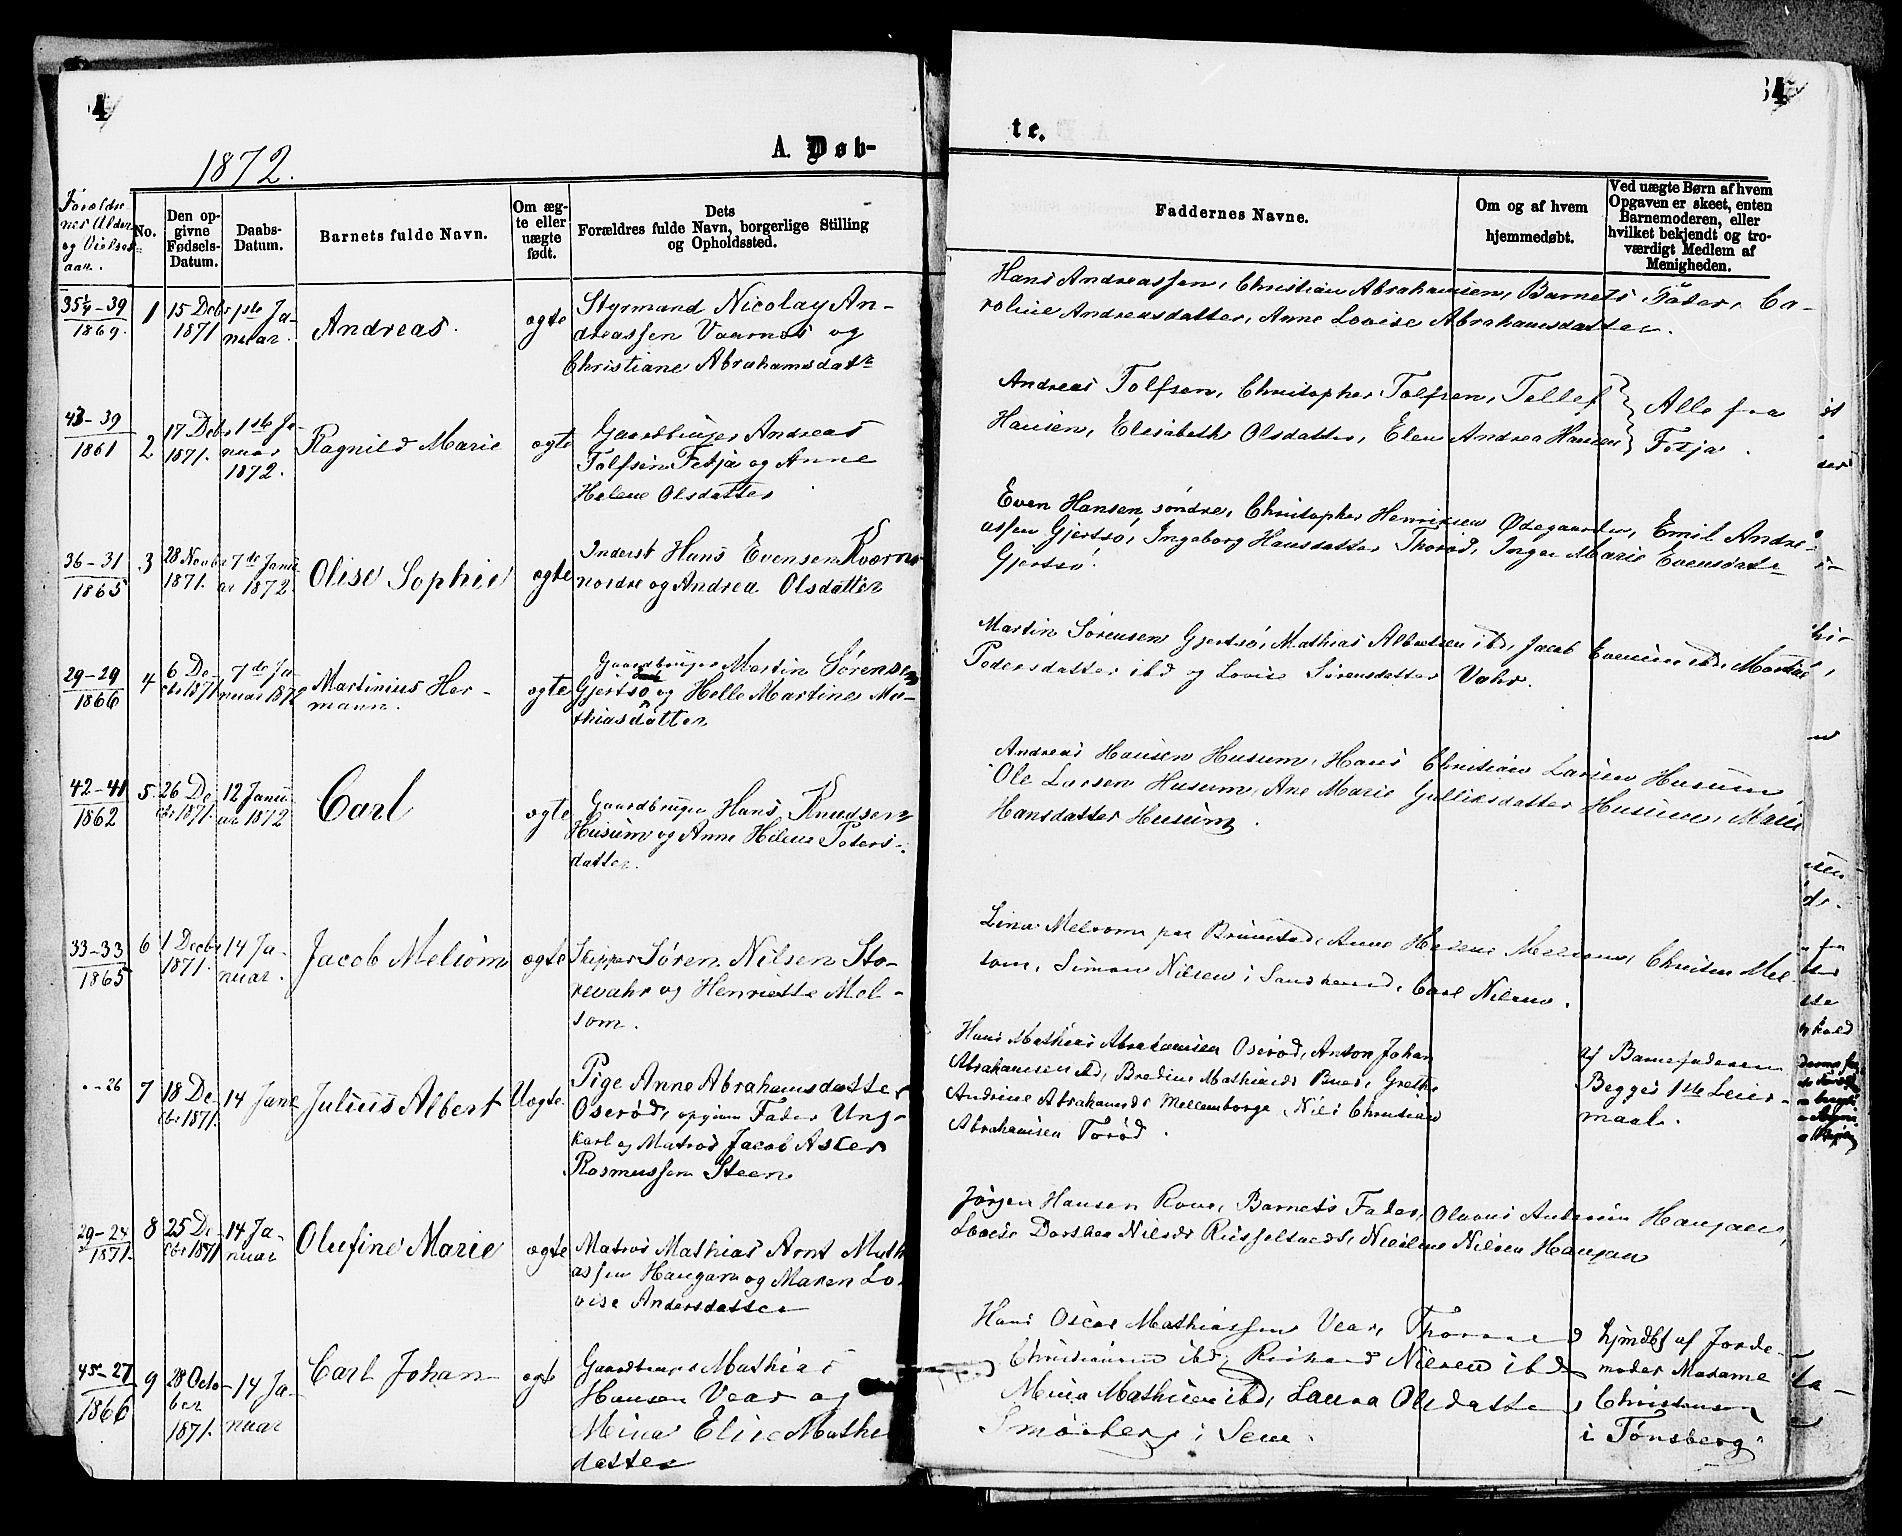 4
1872.
A. Døb-
Forældre
nes Alder
og Vielses
aar.
No.
Den op-
givne
Fødsels-
Datum.
Daabs-
Datum.
Barnets fulde Navn.
Om æg-
te eller
uægte
født.
Dets
Forældres fulde Navn, borgerlige Stilling
og Opholdssted.
35¼-39
1869.
1
15 Decbr
1871
1ste Ja-
nuar.
Andreas.
ægte
Styrmand Nicolay An-
dreassen Vaarnes og
Christiane Abrahamsdatr
43-39
1861
2
17 Decbr
1871.
1ste Ja-
nuar
1872.
Ragnild Marie
ægte
Gaardbruger Andreas
Tolfsen Fetja og Anne
Helene Olsdatter
36-31
1865
3
28 Novbr
1871.
7de Janu
ar 1872.
Olise Sophie
ægte
Inderst Hans Evensen Kværne
nordre og Andrea Olsdatter
29-29
1866
4
6 De-
cbr 1871
7de Ja-
nuar 1872
Martinius Her-
mann.
ægte
Gaardbruger Martin Sørensen
Gjertsø og Helle Martine Ma-
thiasdatter
42-41
1862
5
26 De-
cbr 1871.
12 Janu
ar 1872
Carl
ægte
Gaardbruger Hans Knudsen
Husum og Anne Helene Peters-
datter.
33-33
1865
6
1 Decbr
1871.
14 Ja-
nuar.
Jacob Melsom
ægte
Skipper Søren Nilsen Sto-
revahr og Henriette Mel-
som.
"-26
7
18 De-
cbr 1871.
14 Janr
Julius Albert
Uægte.
Pige Anne Abrahamsdatter
Oserød, opgiven Fader Ung-
karl og Matros Jacob Aster
Rasmussen Steen
29-24
1871.
8
25 De-
cbr 1871
14 Ja-
nuar
Olufine Marie
ægte
Matros Mathias Arnt Math
assen Haugan og Maren Lo-
vise Andersdatter
45-27
1866
9
28 Octo-
ber
1871.
14 Ja-
nuar
Carl Johan
ægte
Gaardbruger Mathias
Hansen Vear og
Mina Elise Mathe
datter
te.
Faddernes Navne.
Om og af hvem
hjemmedøbt.
Ved uægte Børn af hvem
Opgaven er skeet, enten
Barnemoderen, eller
hvilket bekjendt og tro-
værdigt Medlem af
Menigheden.
Hans Andreassen, Christian Abrahamsen, Barnets Fader, Ca-
roline Andreasdatter, Anne Lovise Abrahamsdatter.
Andreas Tolfsen, Christopher Tolfsen, Tellef
Hansen, Elisabeth Olsdatter, Elen Andrea Hansen
Alle fra
Fetja.
Even Hansen søndre, Christopher Henriksen Ødegaarden, Emil Andre-
assen Gjertsø, Ingeborg Hansdatter Thorød, Inger Marie Evensdatr
Gjertsø.
Martin Sørensen Gjertsø, Mathias Albretsen ibd, Jacob Evensen ibd,
Pedersdatter ibd og Lovise Sørensdatter Vahr.
Andreas Hansen Husum, Hans Christian Larsen Husum,
Ole Larsen Husum, Ane Marie Gulliksdatter Husum, Marie
Hansdatter Husum.
Lina Melsom paa Brunstad, Anne Helene Melsom, Christen Mel
som, Simon Nilsen i Sandherred, Carl Nilsen.
Hans Mathias Abrahamsen Oserød, Anton Johan
Abrahamsen ibd, Bredine Mathiasdr Buer, Grethe
Andrine Abrahamsdr Mellemborge, Nils Christian
Abrahamsen Torød.
af Barnefaderen
Begges 1ste Leier-
maal.
Jørgen Hansen Rove, Barnets Fader, Olavus Andersen Haugan,
Lovise Dorthea Nilsdr Russeltvedt, Nilsen Haugan
Hans Oscar Mathiassen Vear,
Christiansen ibd, Richard Nilsen ibd
Mina Mathisen ibd, Laura Olsdatter
Smørberg i Sem.
hjmdbt af Jorde-
moder Madame
Christensen
i Tønsberg